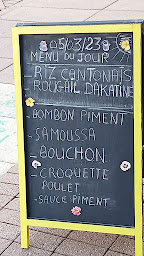 05/03/23
MENU DU JOUR
- RIZ CANTONAIS
ROUGAIL DAKATINE
- BOMBON PIMENT
- SAMOUSSA
- BOUCHON
- CROQUETTE
POULET
- SAUCE PIMENT